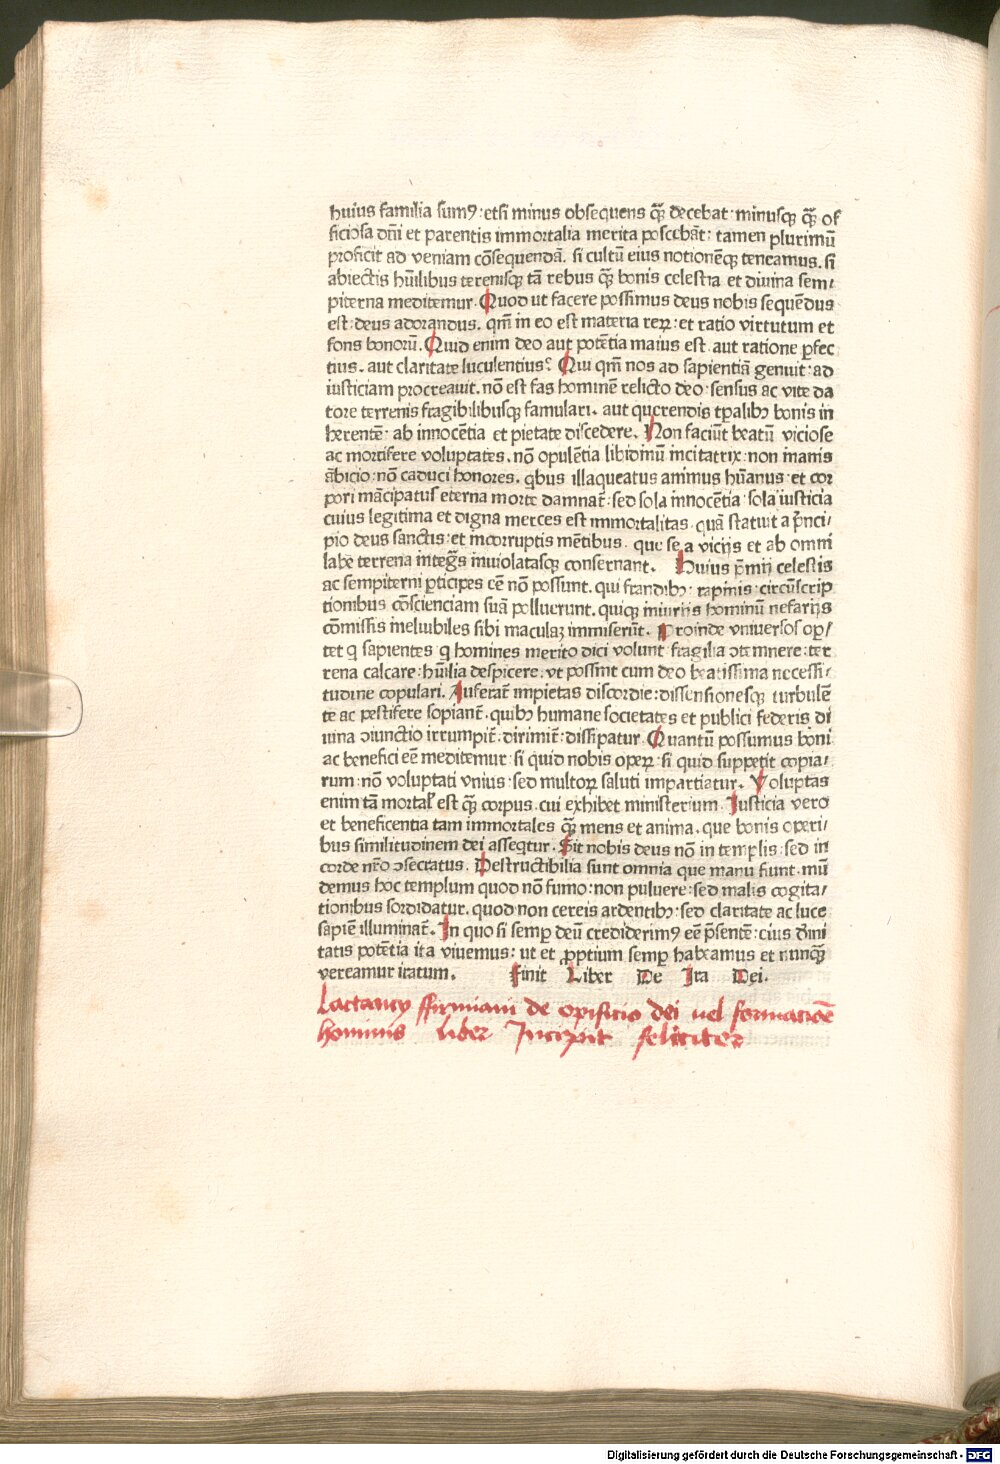 huius familia sumꝰ: etsi minus obsequens q̄ȝ decebat: minusqȝ q̄ȝ of
ficiosa dn̄i et parentis immortalia merita poscebāt: tamen plurimū
proficit ad veniam cōsequendā. si cultū eius notionēqȝ teneamus. si
abiectis hūilibus terenisqȝ tā rebus q̄ȝ bonis celestia et diuina sem⸗
piterna meditemur. Quod ut facere possimus deus nobis sequēdus
est: deus adorandus. qm̄ in eo est materia reꝝ: et ratio virtutum et
fons bonorū. Quid enim deo aut potētia maius est. aut ratione ꝑfec
tius. aut claritate luculentius? Qui qm̄ nos ad sapientiā genuit: ad
iusticiam procreauit. nō est fas hominē relicto deo: sensus ac vite da
tore terrenis fragibilibusqȝ famulari. aut querendis tꝑalibȝ bonis in
herentē: ab innocētia et pietate discedere. Non faciūt beatū viciose
ac mortifere voluptates. nō opulētia libidinū incitatrix: non inanis
ābicio: nō caduci honores. qͥbus illaqueatus animus hūanus: et cor
pori mācipatus eterna morte damnat̄: sed sola innocētia: sola iusticia
cuius legitima et digna merces est immortalitas. quā statuit a pͥnci⸗
pio deus sanctis: et incorruptis mētibus. que se a vicijs et ab omni
labe terrena integꝛ̄s inuiolatasqȝ conseruant. Huius p̄mij celestis
ac sempiterni ꝑticipes eē nō possunt. qui fraudibȝ: rapinis: circūscrip
tionibus cōscienciam suā polluerunt. quiqȝ iniurijs hominū nefarijs
cōmissis ineluibiles sibi maculaȝ immiserūt. Proinde vniuersos opꝛ⸗
tet qͥ sapientes qͥ homines merito dici volunt fragilia ↄtēmnere: ter
rena calcare: hūilia despicere. vt possint cum deo beatissima necessi⸗
tudine copulari. Auferat̄ impietas discordie: dissensionesqȝ turbulē
te ac pestifere sopiant̄. quibȝ humane societates et publici federis di
uina ↄiunctio irrumpit̄: dirimit̄: dissipatur. Quantū possumus boni
ac benefici eē meditemur: si quid nobis opeꝝ: si quid suppetit copia⸗
rum: nō voluptati vnius: sed multoꝝ saluti impartiatur. Voluptas
enim tā mortaƚ est q̄ȝ corpus. cui exhibet ministerium. Iusticia vero
et beneficentia tam immortales q̄ȝ mens et anima. que bonis operi⸗
bus similitudinem dei asseqtur. Sit nobis deus nō in templis: sed in
corde nr̄o ↄsecratus. Destructibilia sunt omnia que manu fiunt. mū
demus hoc templum quod nō fumo: non puluere: sed malis cogita⸗
tionibus sordidatur. quod non cereis ardentibȝ: sed claritate ac luce
sapiē illuminat̄. In quo si semꝑ deū crediderimꝰ eē p̄sentē: cius diuini
tatis potētia ita viuemus: ut et ꝓpitium semꝑ habeamus et nunqȝ̄
vereamur iratum. Finit Liber De Ira Dei.
Lactancy ffirmiani de opificio dei uel formacioē
hominis liber Incipit feliciter
Digitalisierung gefördert durch die Deutsche Forschungsgemeinschaft - DFG